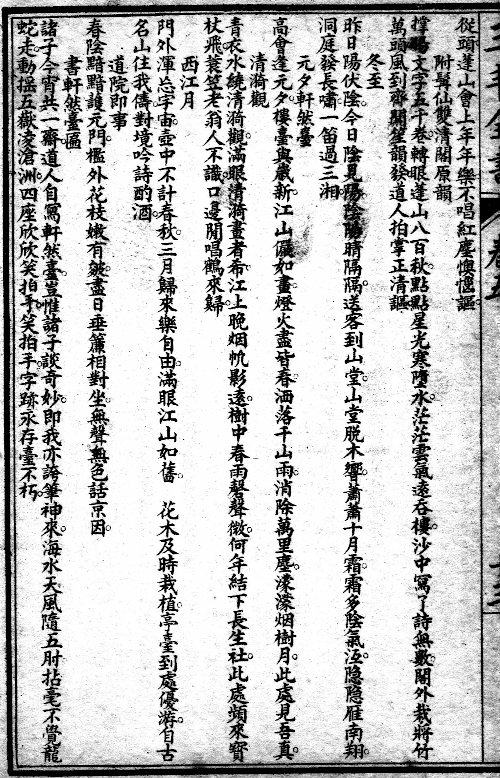 從頭蓬山會上年年樂不唱紅塵懊惱謳
附髯仙雙清閣原韻
撐腸文字五千卷轉眼蓬山八百秋點點星光寒墮水茫茫雲氣遠吞樓沙中寫了詩無數閣外栽將竹
萬頭風到齋開笙韻發道人拍掌正清謳
冬至
昨日陽伏陰今日陰見陽陰陽晴隔隔送客到山堂山堂脫木響蕭蕭十月霜霜多陰氣沍隱隱雁南翔
洞庭發長嘯一笛過三湘
元夕軒然臺
高會逢元夕樓臺與歲新江山儼如畫燈火盡皆春洒落千山雨消除萬里塵濛濛烟樹月此處見吾真
清漪觀
青衣水繞清漪觀滿眼清漪畫者希江上晚烟帆影遠樹中春雨磬聲微何年結下長生社此處頻來寶
杖飛蓑笠老翁人不識口邊閒唱鶴來歸
西江月
門外渾忘宇宙壺中不計春秋三月歸來樂自由滿眼江山如舊 花木及時栽植亭臺到處優游自古
名山住我儔對境吟詩酌酒
道院即事
春陰黯黯護元門檻外花枝嫩有皴盡日垂簾相對坐無聲無色話京因
書軒然臺匾
諸子今宵共一齋道人自寫軒然臺豈惟諸子談奇妙即我亦誇筆神來海水天風隨五肘拈毫不覺龍
蛇走動搖五嶽凌滄洲四座欣欣笑拍手笑拍手字跡永存臺不朽